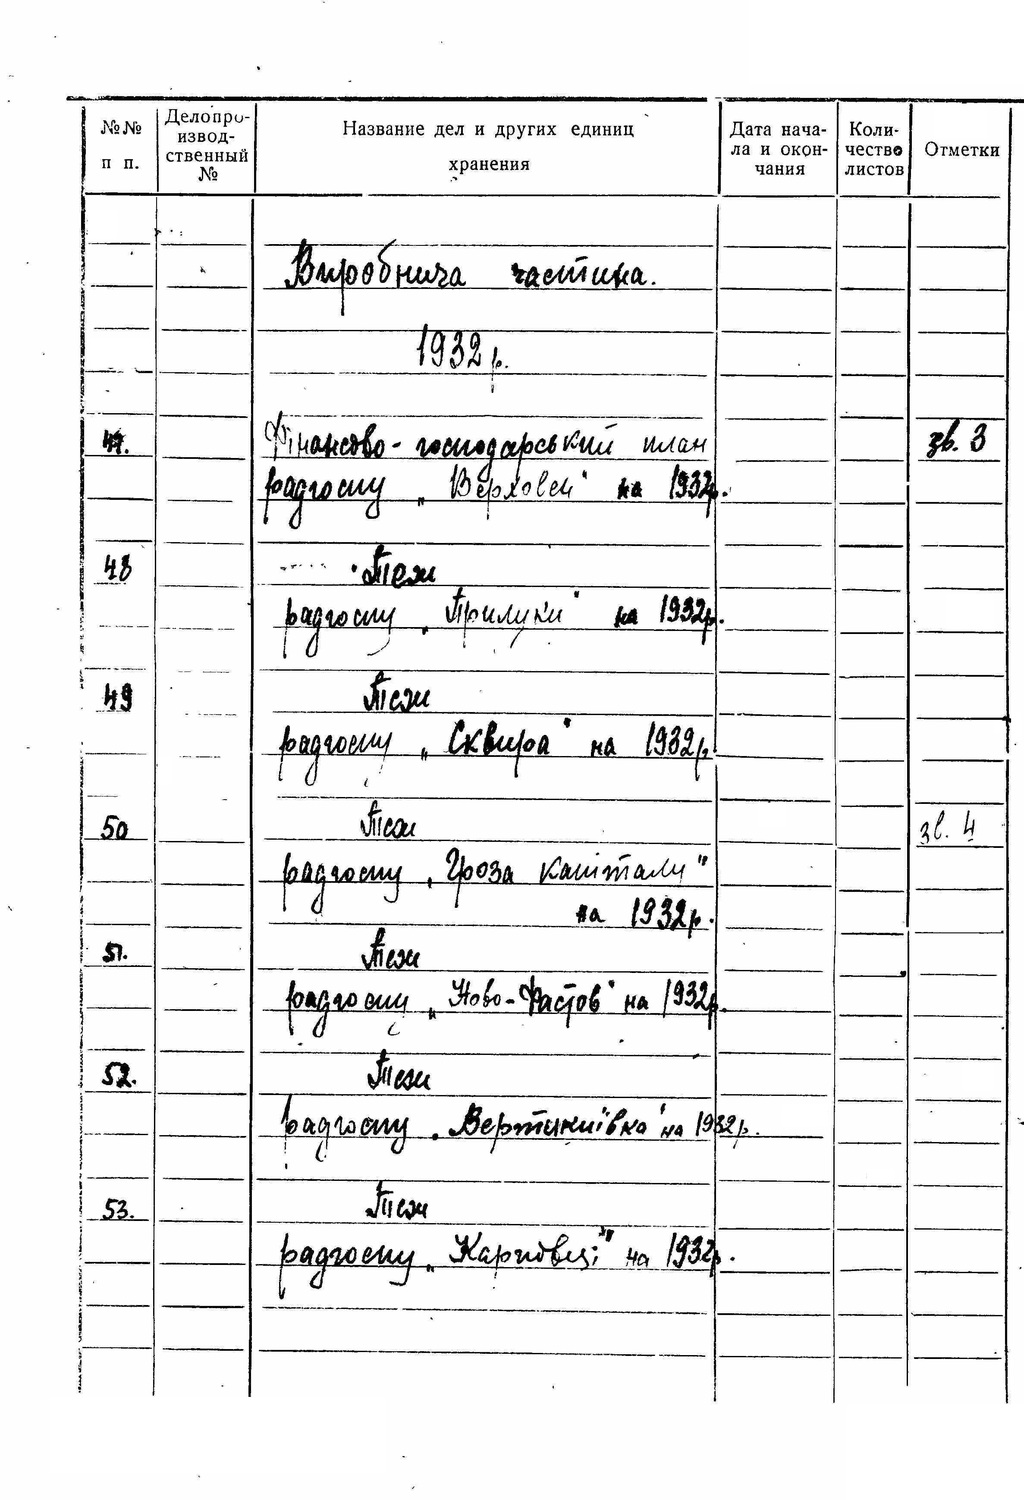 №№ п п.
Делопро-
извод-
ственный
№
Название дел и других единиц
хранения
Дата нача-
ла и окон-
чания
Коли-
чество
листов
Отметки
Виробнича частина.
1932 р.
47. Фінансово-господарський план зв. 3
радгоспу „ " на 1932р.
48 Теж
радгоспу „Прилуки" на 1932р.
49 Теж
радгоспу „Сквира" на 1932р
50 Теж зв. 4
радгоспу „Гроза капіталу"
на 1932р.
51. Теж
радгоспу „Ново-Фастов" на 1932р.
52. Теж
радгоспу „ " на 1932р.
53. Теж
радгоспу „Карповці" на 1932р.